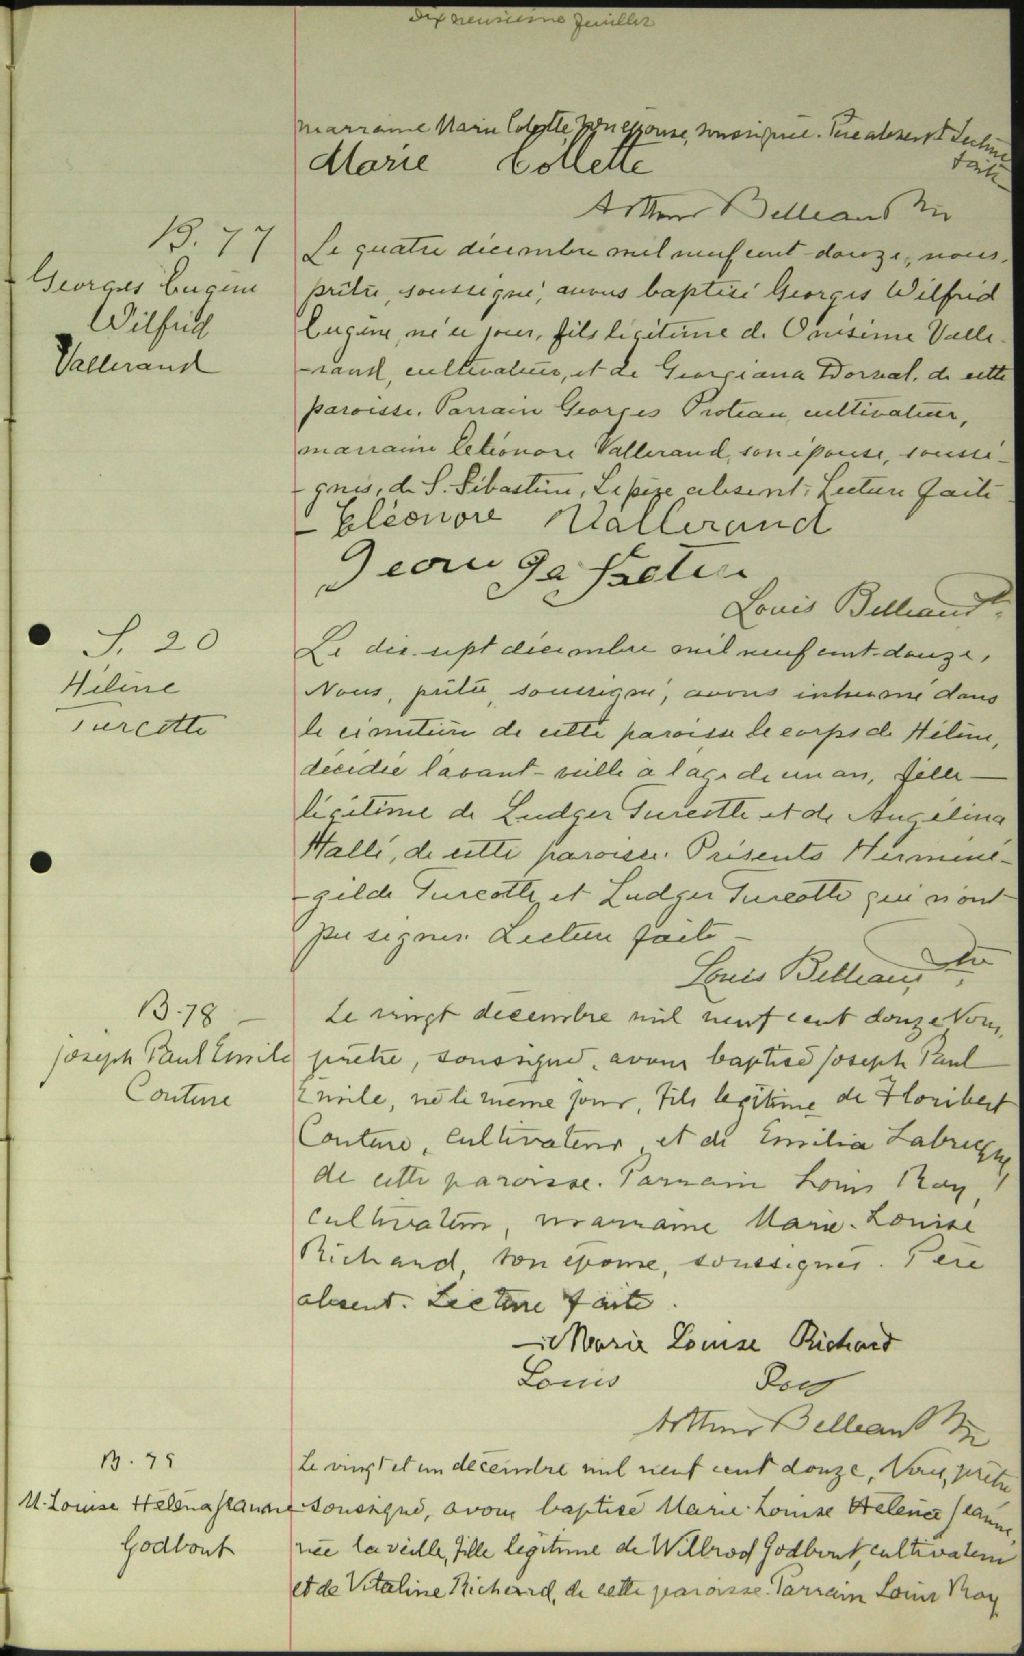 Dix neuvième feuillet
marraine Marie Colette, son épouse, soussignée. Père absent. Lecture
faite
Marie Collette
Arthur Belleau Ptr
B. 77
Georges Eugène
Wilfrid
Vallerand
Le quatre décembre mil neuf cent douze, nous,
prêtre, soussigné, avons baptisé Georges Wilfrid
Eugène, né ce jour, fils légitime de Onésime Valle-
-rand, cultivateur, et de Georgiana Dorval, de cette
paroisse. Parrain Georges Proteau, cultivateur,
marraine Eléonore Vallerand, son épouse, soussi-
-gnés, de S. Sébastien, Le père absent. Lecture faite
- Eléonore Vallerand
Louis Belleau Ptr
S. 20
Hélène
Turcotte
Le dix-sept décembre mil neuf cent-douze,
Nous, prêtre, soussigné, avons inhumé dans
le cimetière de cette paroisse le corps de Hélène,
décédée l'avant-veille à l'age de un an, fille
légitime de Ludger Turcotte et de Angélina
Hallé, de cette paroisse. Présents Herméné-
-gilde Turcotte et Ludger Turcotte qui n'ont
pu signer. Lecture faite -
Louis Belleau, Ptr
B-78 -
Joseph Paul Emile
Couture
Le vingt décembre mil neuf cent douze, Nous,
prêtre, soussigné, avons baptisé Joseph Paul
Emile, né le même jour, fils légitime de Floribert
Couture, cultivateur, et de Emilia Labrecque,
de cette paroisse. Parrain Louis Roy,
cultivateur, marraine Marie-Louise
Richard, son épouse, soussignés. Père
absent. Lecture faite.
Marie Louise Richard
Louis Roy
Arthur Belleau Ptr
B. 79
M. Louise Héléna Jeanne
Godbout
Le vingt et un décembre mil neuf cent douze, Nous, prêtre
soussigné, avons baptisé Marie-Louise Héléna Jeanne,
née la veille, fille légitime de Wilbrod Godbout, cultivateur
et de Vitaline Richard, de cette paroisse. Parrain Louis Roy